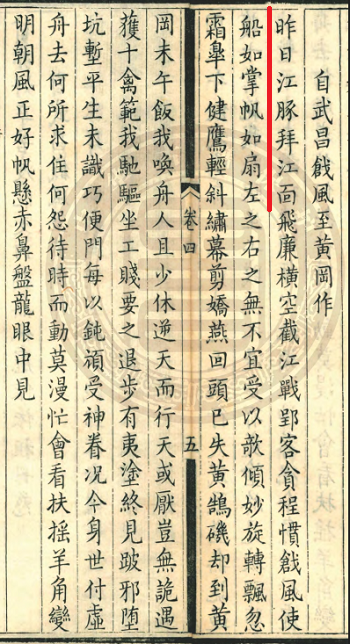 自武昌戧風至黃岡作
昨日江豚拜江面飛廉橫空截江戰郢客貪程慣戧風使
船如掌帆如扇左之右之無不宜受以欹傾妙旋轉飄忽
霜臯下健鷹輕斜繡幕剪嬌燕回頭已失黃鵠磯却到黃
卷四
五
岡未午飯我喚舟人且少休逆天而行天或厭豈無詭遇
獲十禽範我馳驅坐工賤要之退步有夷塗終見跛邪墮
坑塹平生未識巧便門每以鈍頑受神眷况今身世付虛
舟去何所求住何怨待時而動莫漫忙會看扶搖羊角變
明朝風正好帆懸赤鼻盤龍眼中見